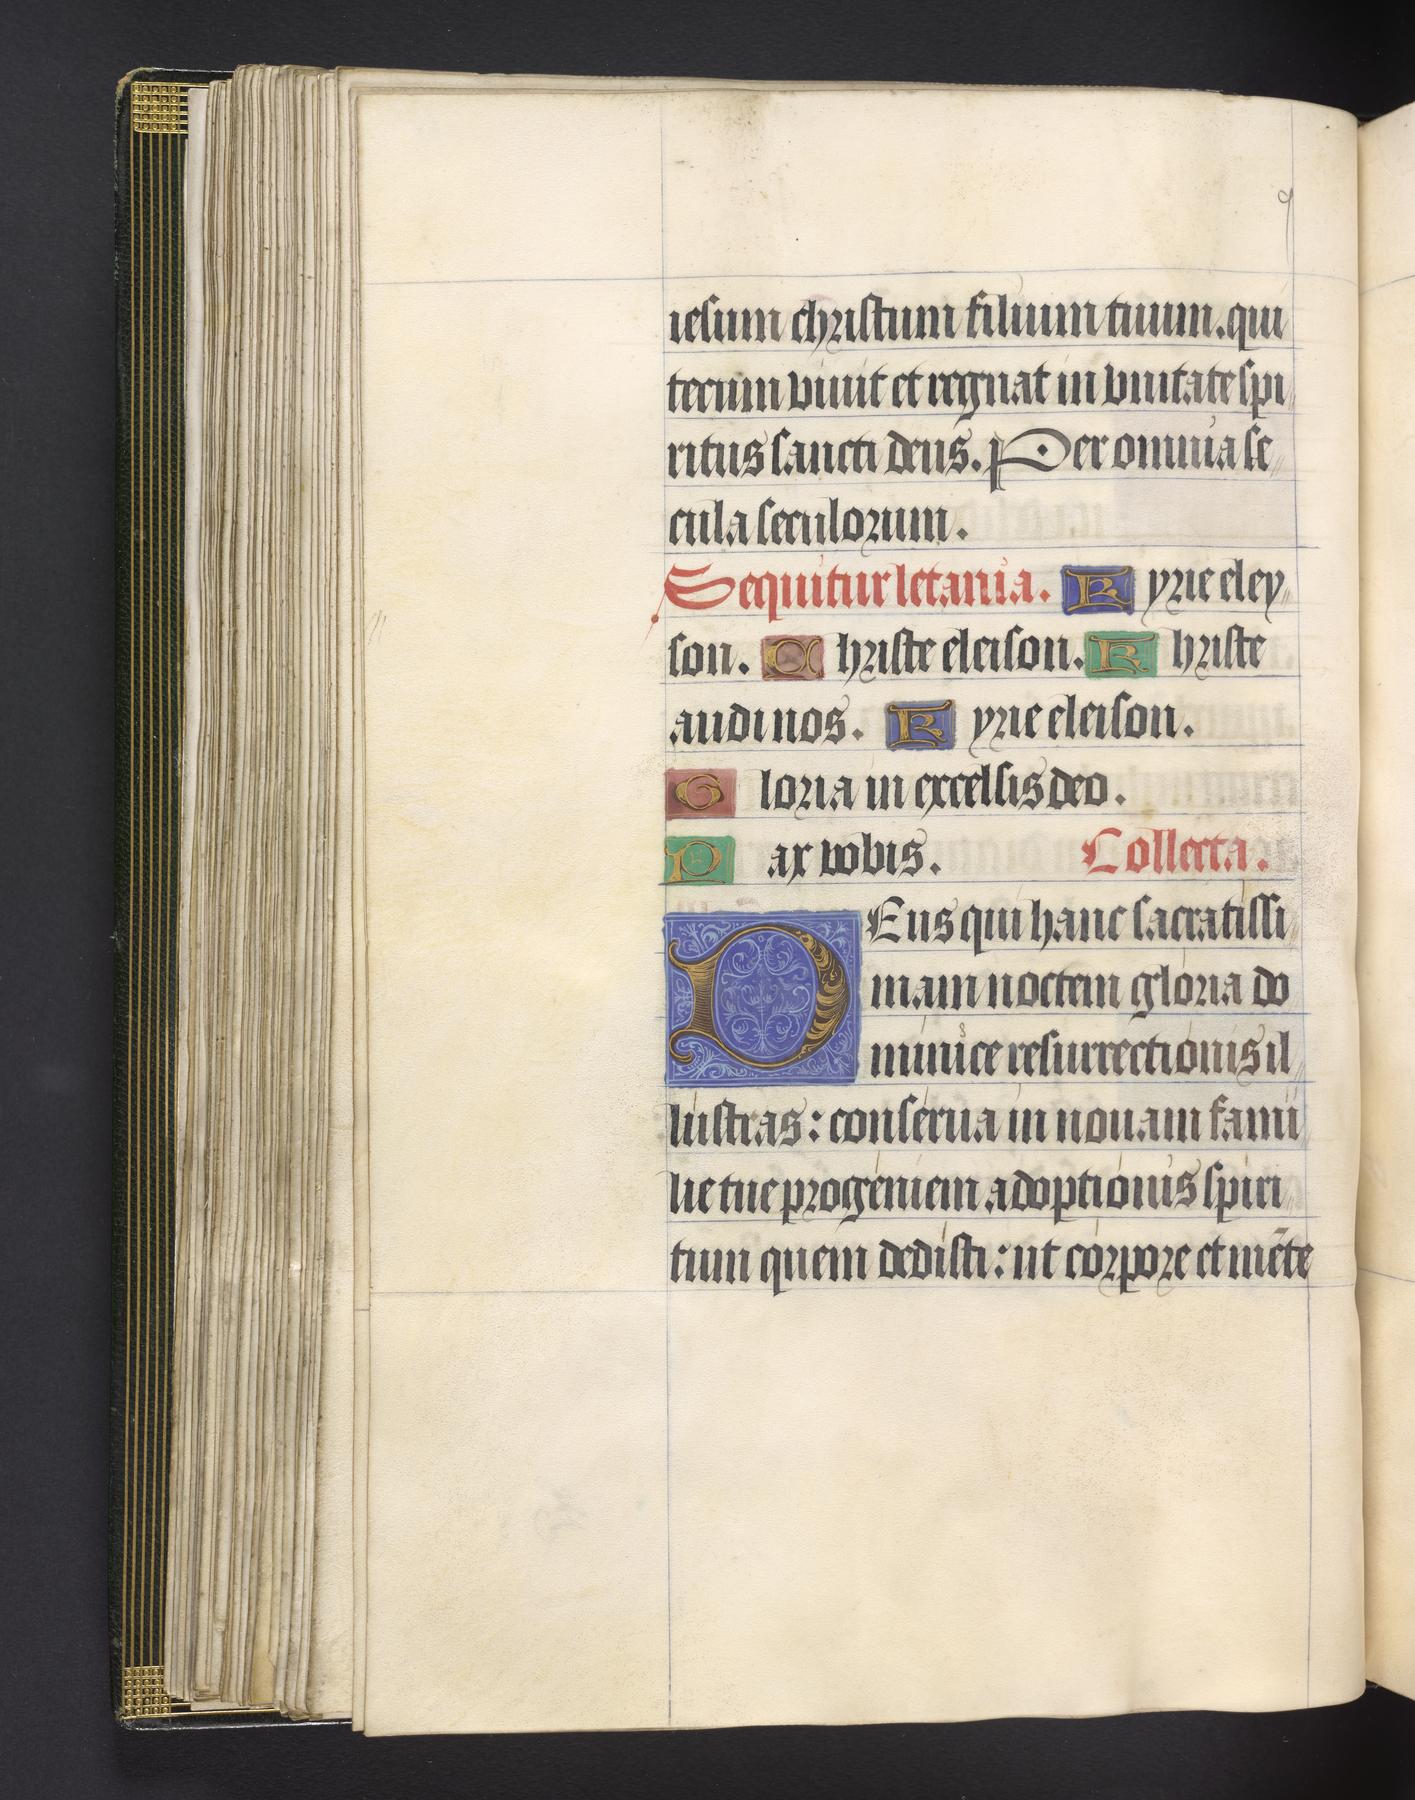 iesum christum filium tuum. qui
tecum viuit et regnat in vnitate spi
ritus sancti deus. Per omnia se
cula seculorum.
Sequitur letania. Kyrie eley
son. Christe eleison. Khriste
audi nos. Kyrie eleison.
Gloria in excelsis deo.
Pax vobis. Collecta.
DEus qui hanc sacratissi
mam noctem gloria do
minice resurrectionis il
lustras: conserua in nouam fami
lie tue progeniem adoptionis spiri
tum quem dedisti: ut corpore et mēte